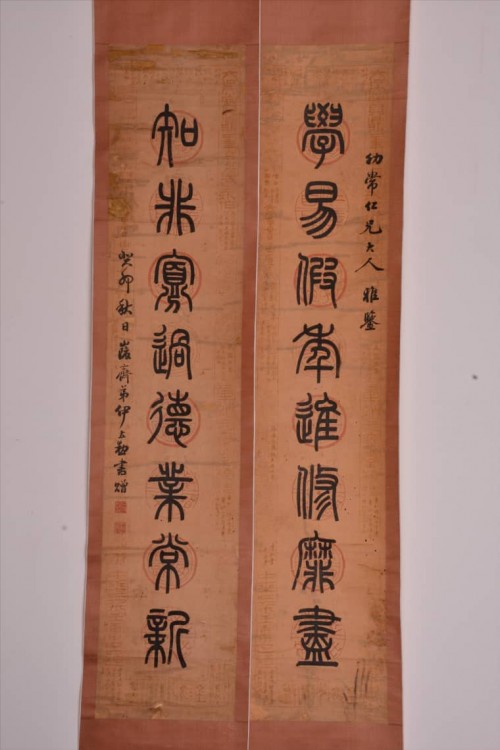 幼常仁兄大人 雅鑒
學易假年進修靡盡
知非寡過德業常新
癸卯秋日 齋弟伊立勳書贈